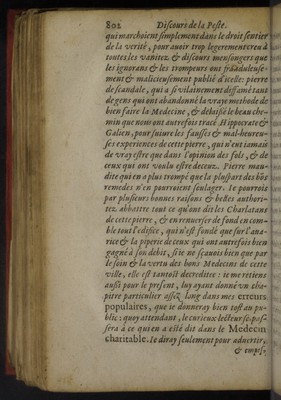 802 Discours de la Peste.
qui marchoient simplement dans le droit sentier
de la verité, pour auoir trop legerement creu à
toutes les vanitez & discours mensongers que
les ignorans & les trompeurs ont frauduleuse-
ment & malicieusement publié d'icelle: pierre
de scandale, qui a si vilainement diffamé tant
de gens qui ont abandonné la vraye methode de
bien faire la Medecine, & delaissé le beau che-
min que nous ont autrefois tracé Hippocrate &
Galien, pour suiure les fausses & mal-heureu-
ses experiences de cette pierre, qui n'eut iamais
de vray estre que dans l'opinion des fols, & de
ceux qui ont voulu estre deceus. Pierre mau-
dite qui en a plus trompé que la pluspart des bons
remedes n'en pourroient soulager. Ie pourrois
par plusieurs bonnes raisons & belles authori-
tez abbattre tout ce qu'ont dit les Charlatans
de cette pierre, & en renuerser de fond en com-
ble tout l'edifice, qui n'est fondé que sur l'aua-
rice & la piperie de ceux qui ont autrefois bien
gagné à son debit, si ie ne sçauois bien que par
le soin & la vertu des bons Medecins de cette
ville, elle est tantost decreditee: ie me retiens
aussi pour le present, luy ayant donné vn cha-
pitre particulier assez long dans mes erreurs
populaires, que ie donneray bien tost au pu-
blic: quoy attendant, le curieux lecteur se pas-
sera à ce qui en a esté dit dans le Medecin
charitable. Ie diray seulement pour aduertir,
& empes-